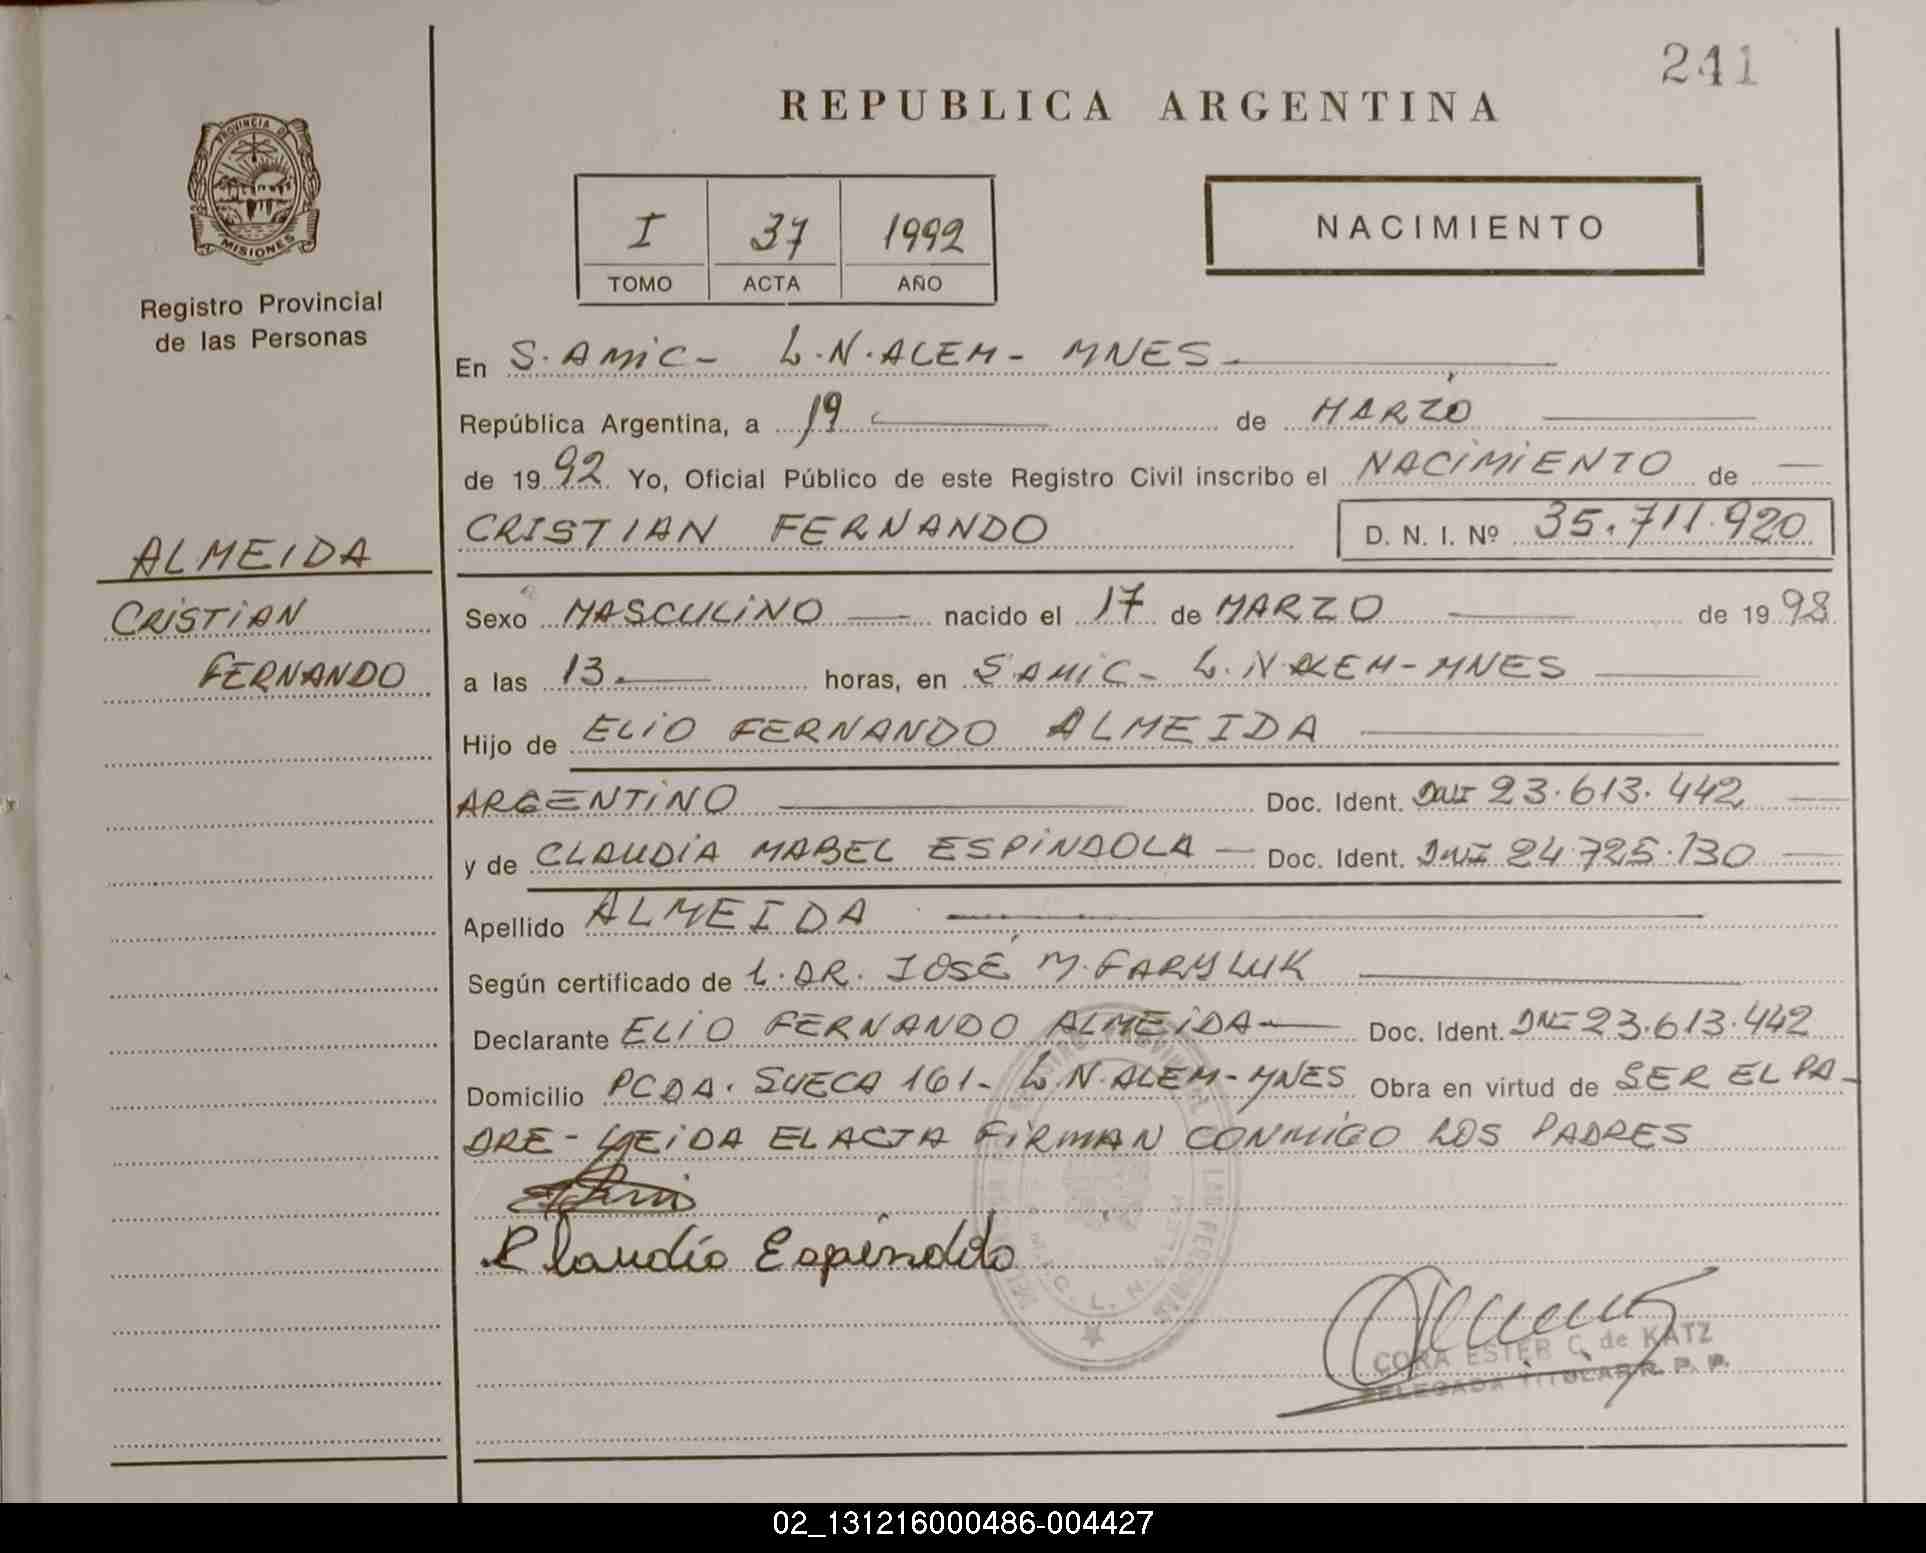 241
REPUBLICA ARGENTINA
PROVINCIA DE
MISIONES
Registro Provincial
de las Personas
I 37 1992
TOMO ACTA AÑO
NACIMIENTO
En S. AMIC - L.N. ALEM - MNES
República Argentina, a 19 de MARZO
de 1992 Yo, Oficial Público de este Registro Civil inscribo el NACIMIENTO de
CRISTIAN FERNANDO D. N. I. Nº 35.711.920
ALMEIDA
CRISTIAN
FERNANDO
Sexo MASCULINO nacido el 17 de MARZO de 1998
a las 13 horas, en S AMIC - L.N ALEM - MNES
Hijo de ELIO FERNANDO ALMEIDA
ARGENTINO Doc. Ident. DNI 23.613.442
y de CLAUDIA MABEL ESPINDOLA Doc. Ident. DNI 24.725.130
Apellido ALMEIDA
Según certificado de DR. JOSÉ M.
Declarante ELIO FERNANDO ALMEIDA Doc. Ident. DNI 23.613.442
Domicilio PCDA. SUECA 161 - L.N. ALEM - MNES Obra en virtud de SER EL PA-
DRE - LEIDA EL ACTA FIRMAN CONMIGO LOS PADRES
Claudia Espindola
CORA ESTER C. de KATZ
DELEGADA TITULAR R. P. P.
02_131216000486-004427